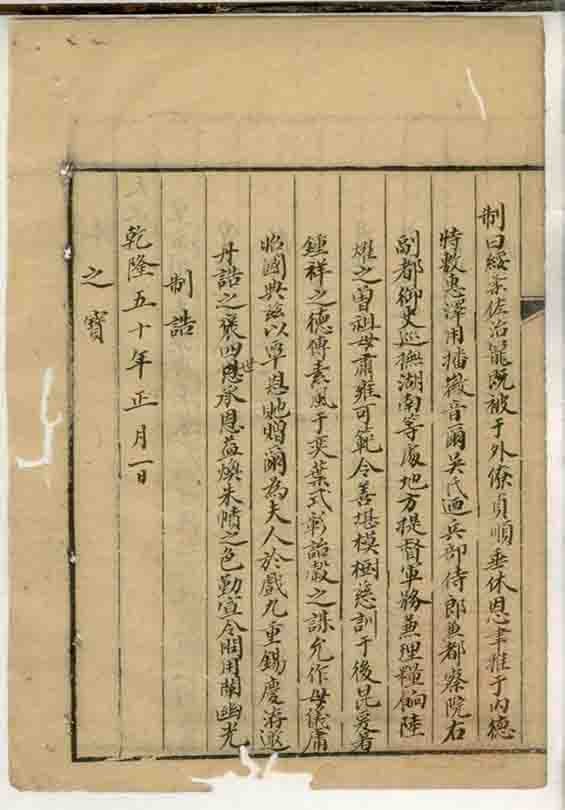 制曰綏柔佐治寵既被于外僚貞順垂休恩聿推于內德
特敷惠澤用播徽音爾吳氏迺兵部侍郎兼都察院右
副都御史巡撫湖南等處地方提督軍務兼理糧餉陸
燿之曾祖母肅雍可範令善堪模樹慈訓于後昆爰著
鍾祥之德傳素風于奕葉式彰詒穀之謀允作母儀庸
昭國典茲以覃恩貤贈爾為夫人於戲九重錫慶洊邀
丹誥之褒四世承恩益煥朱幩之色勤宣令聞用闡幽光
制誥
乾隆五十年正月一日
之寶